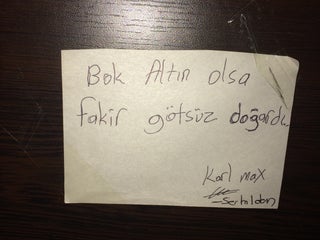 Bok Altın olsa
fakir götsüz doğardı
Karl max